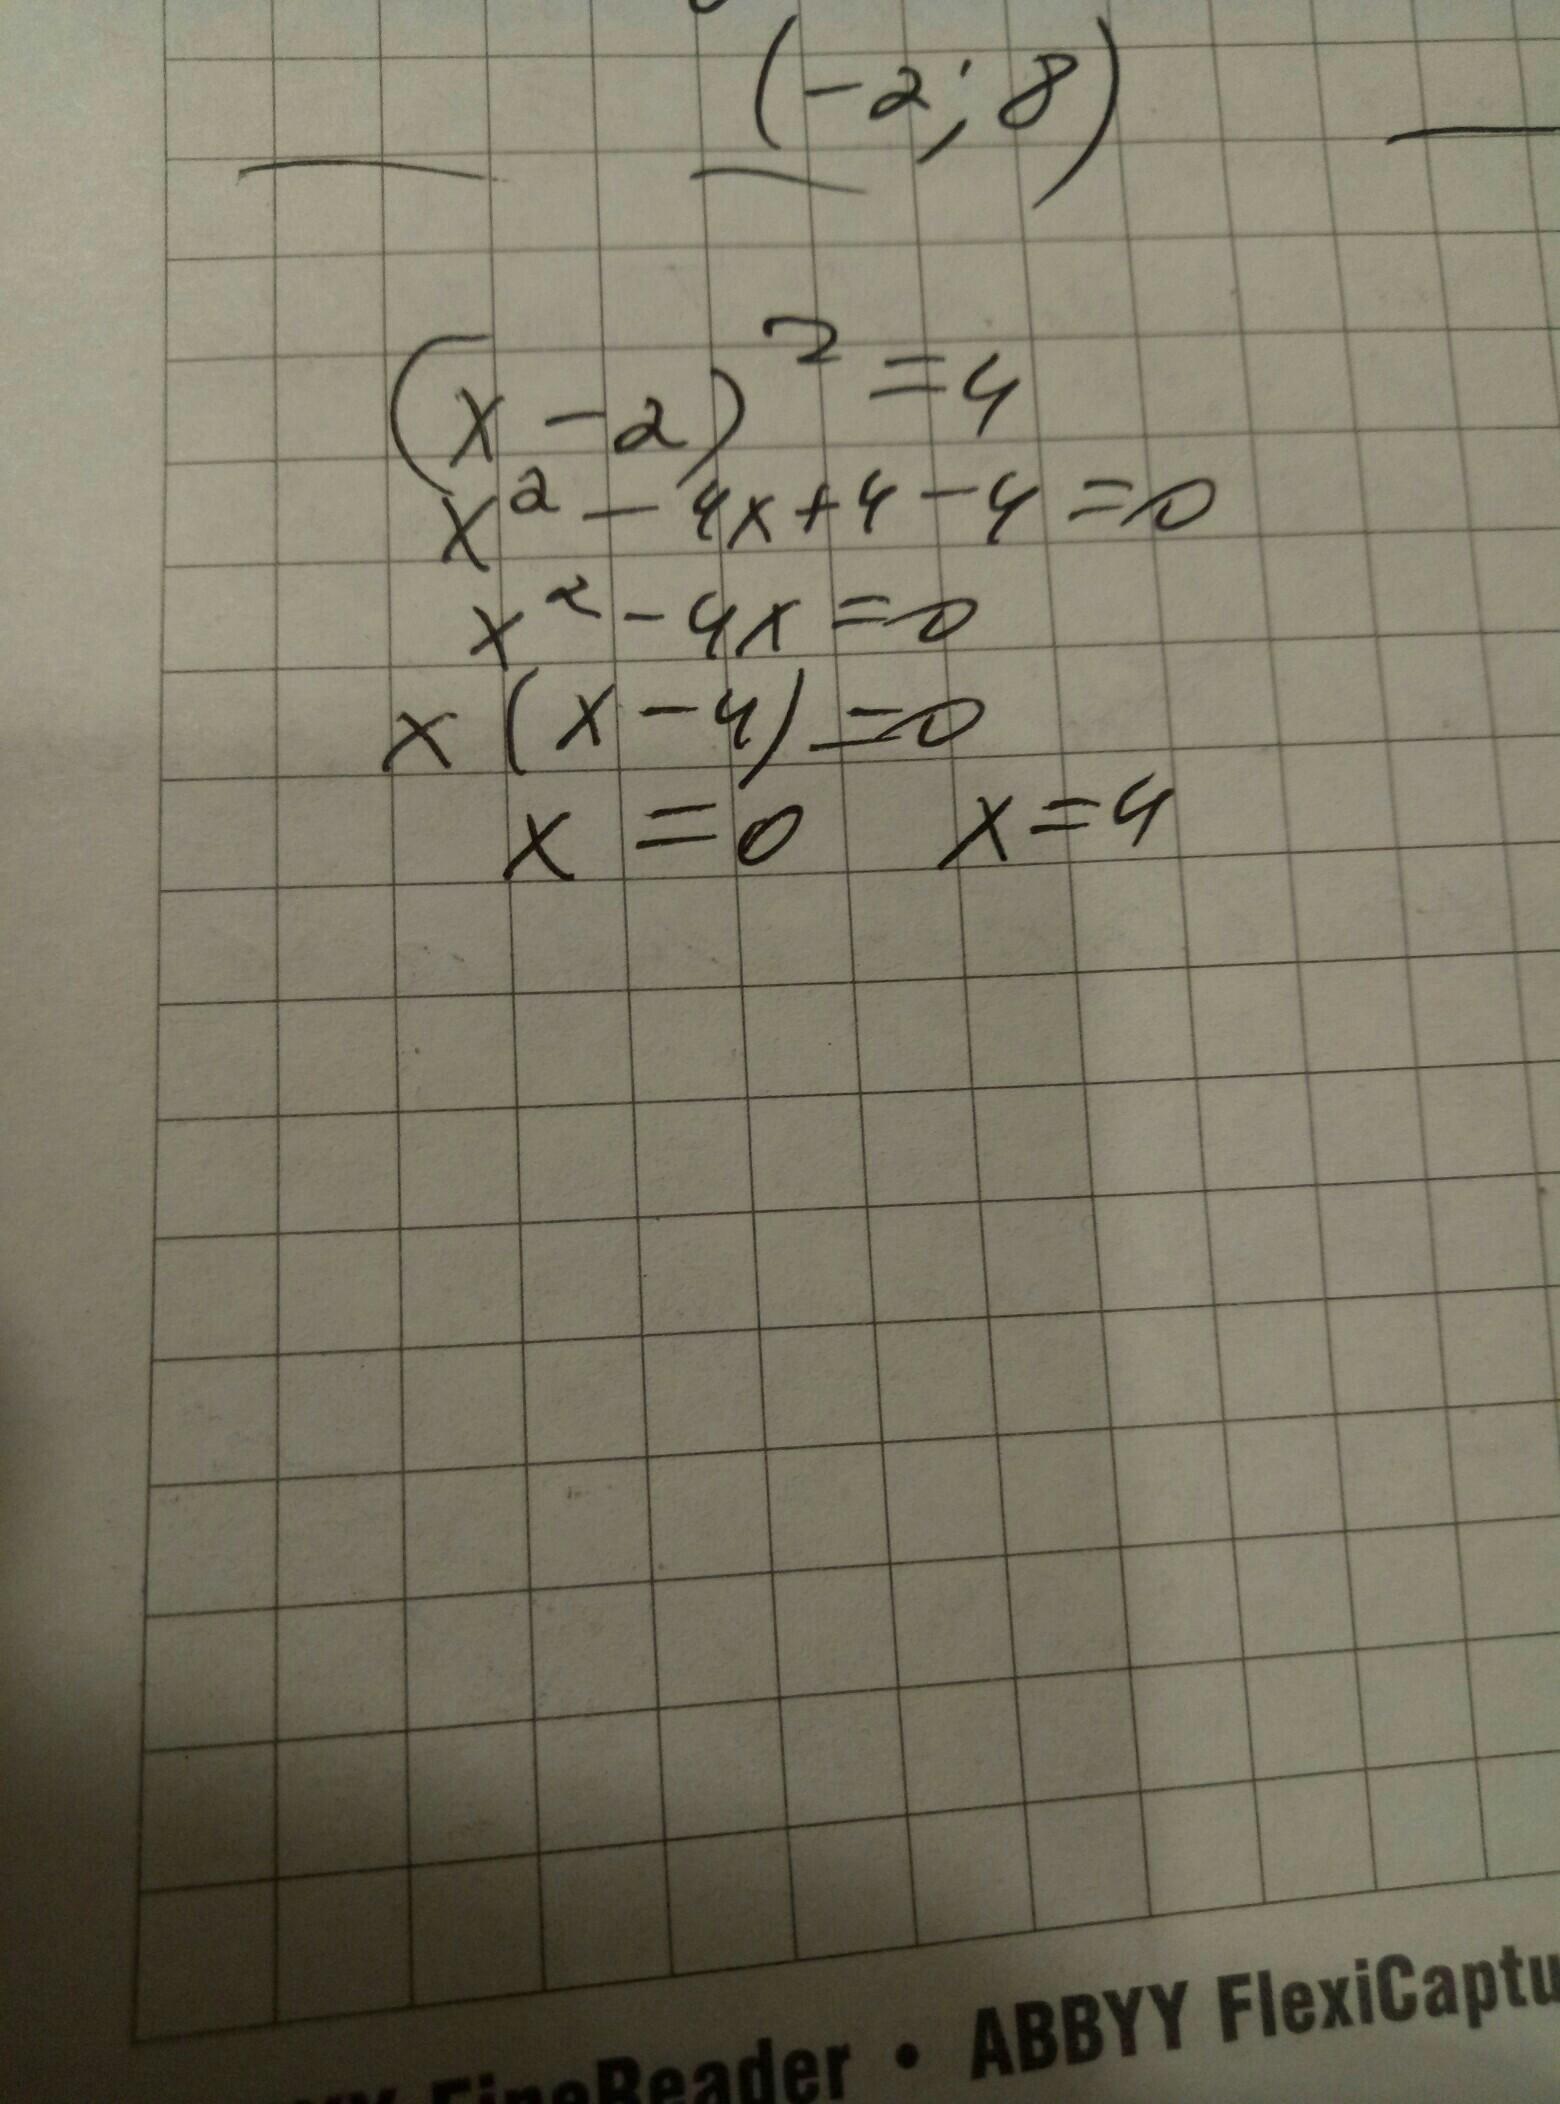 (-2; 8)
(x - 2)² = 4
x² - 4x + 4 - 4 = 0
x² - 4x = 0
x (x - 4) = 0
x = 0 x = 4
FineReader • ABBYY FlexiCaptu